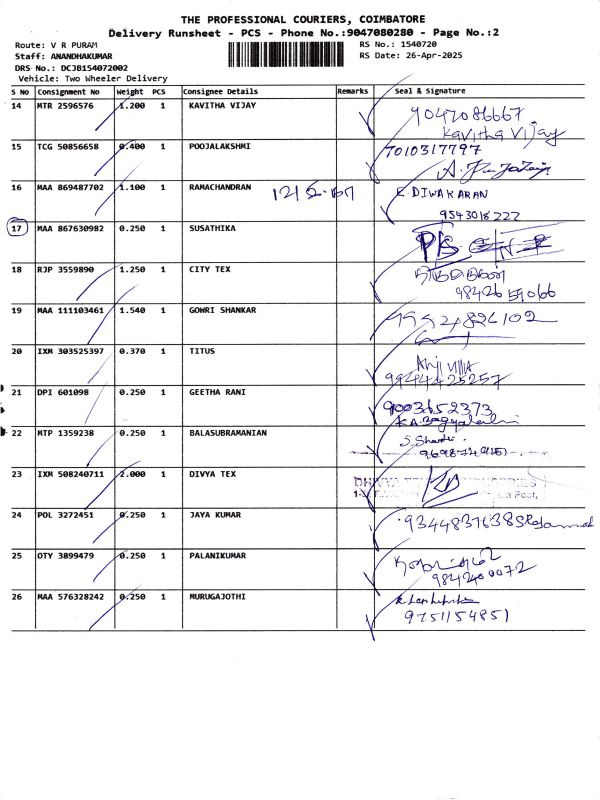 THE PROFESSIONAL COURIERS, COIMBATORE
Delivery Runsheet - PCS - Phone No.:9047080280 - Page No.:2
Route: V R PURAM
RS No.: 1540720
Staff: ANANDHAKUMAR
RS Date: 26-Apr-2025
DRS No.: DCJB154072002
Vehicle: Two Wheeler Delivery
S No Consignment No Weight PCS Consignee Details Remarks Seal & Signature
14 MTR 2596576 1.200 1 KAVITHA VIJAY 9047086667
Kavitha Vijay
15 TCG 50856658 0.400 1 POOJALAKSHMI 7010317797
16 MAA 869487702 1.100 1 RAMACHANDRAN E. DIWAKARAN
9543018222
17 MAA 867630982 0.250 1 SUSATHIKA
18 RJP 3559890 1.250 1 CITY TEX
19 MAA 111103461 1.540 1 GOWRI SHANKAR
20 IXM 303525397 0.370 1 TITUS
9944425257
21 DPI 601098 0.250 1 GEETHA RANI 9003652373
22 MTP 1359238 0.250 1 BALASUBRAMANIAN
23 IXM 508240711 2.000 1 DIVYA TEX
24 POL 3272451 0.250 1 JAYA KUMAR
25 OTY 3899479 0.250 1 PALANIKUMAR
9842400072
26 MAA 576328242 0.250 1 MURUGAJOTHI
9751154851